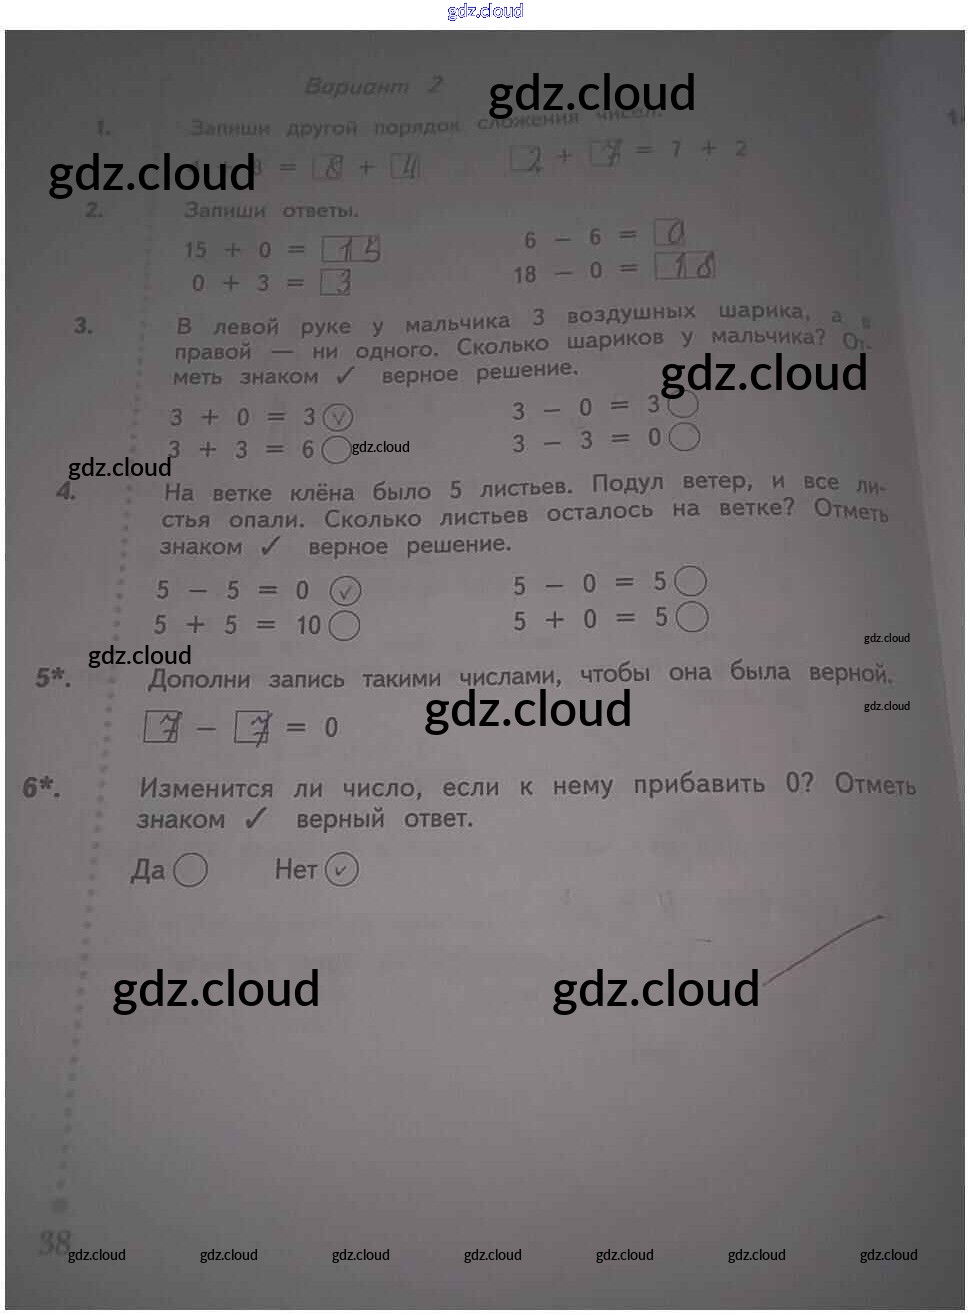 gdz.cloud
Вариант 2
gdz.cloud
1. Запиши другой порядок сложения чисел.
gdz.cloud
8 = 8 + 4 2 + 7 = 7 + 2
2. Запиши ответы.
15 + 0 = 15 6 - 6 = 0
0 + 3 = 3 18 - 0 = 18
3. В левой руке у мальчика 3 воздушных шарика, а в
правой — ни одного. Сколько шариков у мальчика? От-
меть знаком ✓ верное решение.
gdz.cloud
3 + 0 = 3 ✓ 3 - 0 = 3
3 + 3 = 6 3 - 3 = 0
gdz.cloud
gdz.cloud
4. На ветке клёна было 5 листьев. Подул ветер, и все ли-
стья опали. Сколько листьев осталось на ветке? Отметь
знаком ✓ верное решение.
5 - 5 = 0 ✓ 5 - 0 = 5
5 + 5 = 10 5 + 0 = 5
gdz.cloud
gdz.cloud
5*. Дополни запись такими числами, чтобы она была верной.
gdz.cloud
gdz.cloud
7 - 7 = 0
6*. Изменится ли число, если к нему прибавить 0? Отметь
знаком ✓ верный ответ.
Да Нет ✓
gdz.cloud gdz.cloud
38
gdz.cloud gdz.cloud gdz.cloud gdz.cloud gdz.cloud gdz.cloud gdz.cloud